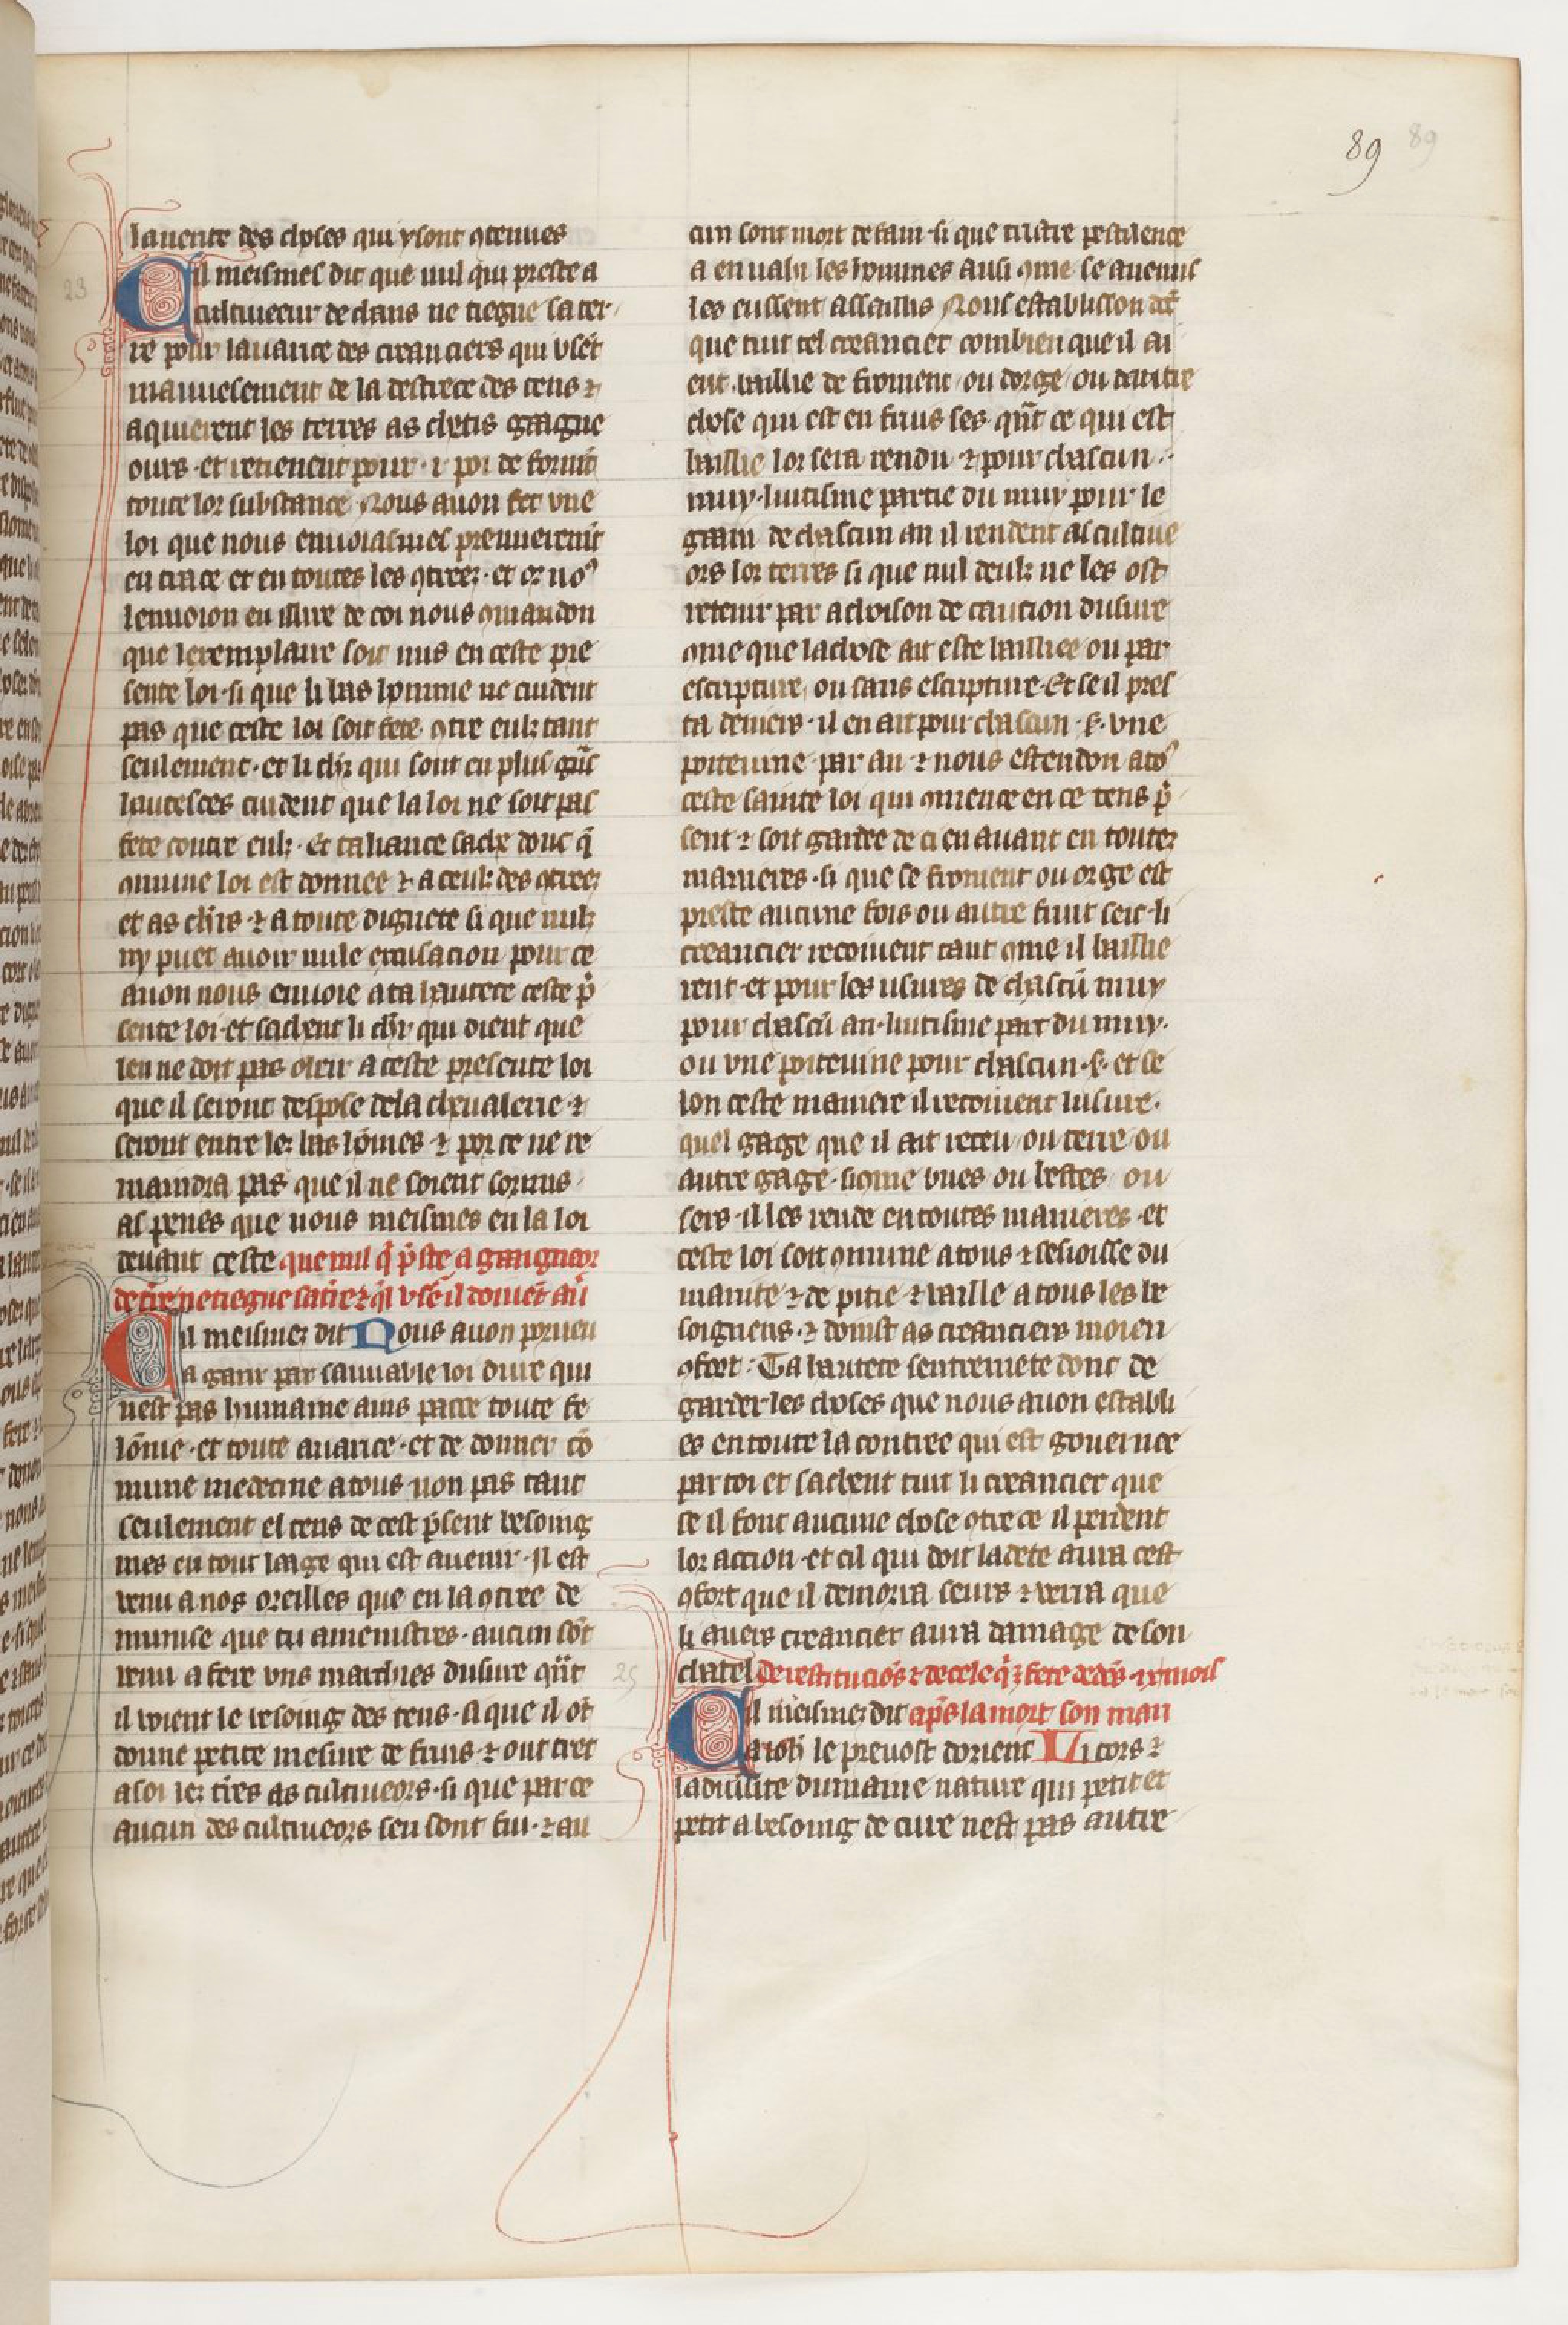 89 89
la uente des choses qui y sont ꝯtenues
23
Cil meismes dit que nul qui preste a
cultiueeur de chans ne tiegne sa ter-
re pour lauarice des creanciers qui vsēt
mauuesement de la destrece des tens ⁊
aquierent les terres as chetis gaagne
ours · et retienent pour · i · poi de formēt
toute lor substance Nous auon fet vne
loi que nous enuoiasmes premierement
en trace et en toutes les ꝯtrees · et or noꝰ
lenuoion en illire de coi nous ꝯmandon
que lexemplaire soit mis en ceste pre
sente loi · si que li bas homme ne cuident
pas que ceste loi soit fete ꝯtre eulz tant
seulement · et li chr̄ qui sont en plus grās
hautesces cuident que la loi ne soit pas
fete contre eulz · Et ta hauce sache donc q̄
ꝯmune loi est donnee ⁊ a ceulz des ꝯtrees
et as chr̄s ⁊ a toute dignete si que nulz
ny puet auoir nule excusacion pour ce
auon nous enuoie a ta hautece ceste p̄
sente loi · et sachent li chr̄ qui dient que
len ne doit pas obeir a ceste presente loi
que il seront despose de la cheualerie ⁊
seront entre les bas hōmes ⁊ por ce ne re
maindra pas que il ne soient sozmis
as penes que nous meismes en la loi
deuant ceste que nul q̄ p̄ste a gaaigneor
de t̄re ne tiegne sa t̄re ⁊ q̄l vsē il doiuēt au
Cil meismes dit Nous auon porueu
a garir par sauuable loi dure qui
nest pas humaine ains passe toute fe
lōnie · et toute auarice · et de donner cō
mune medecine a tous non pas tant
seulement el tens de cest p̄sent besoing
mes en tout leage qui est auenir · Il est
venu a nos oreilles que en la ꝯtree de
munise que tu amenistres · aucun sōt
venu a fere vns marchies dusure qūt
il voient le besoing des tens · si que il ōt
donne petite mesure de fruis ⁊ ont tret
a soi les t̄res as cultiueors · si que par ce
aucun des cultiueors sen sont fui · ⁊ au
cun sont mort de fain · si que tristre pestilence
a enuahi les hommes ausi ꝯme se anemis
les eussent assaillis Nous establisson dōc
que tuit cel creancier combien que il ai
ent baillie de froment · ou dorge · ou dautre
chose qui est en fruis ses · qūt ce qui est
baillie lor sera rendu ⁊ pour chascun
muy · huitisme partie du muy pour le
grain de chascun an il rendent as cultiue
ors lor terres si que nul deulz ne les ost
retenir par achoison de caution dusure
ꝯme que la chose ait este bailliee ou par
escripture ou sans escripture · Et se il pres
ta deniers · il en ait pour chascun · s · vne
poiteuine par an · ⁊ nous estendon a toꝰ
ceste sainte loi qui ꝯmence en ce tens p̄
sent ⁊ soit gardee de ci en auant en toutes
manieres · si que se froment ou orge est
preste aucune fois ou autre fruit sec · li
creancier recoiuent tant ꝯme il baillie
rent · et pour les usures de chascū muy
pour chascū an · huitisme part du muy ·
ou vne poiteuine pour chascun · s · et se
lon ceste maniere il recoiuent lusure ·
quel gage que il ait receu ou terre ou
autre gage · si ꝯme vues ou bestes ou
sers · il les rende en toutes manieres · et
ceste loi soit ꝯmune a tous ⁊ lesioisse du
manite ⁊ de pitie ⁊ vaille a tous les be
soigneus · ⁊ doinst as creanciers moien
ꝯfort : Ta hautece sentremete donc de
garder les choses que nous auon establi
es en toute la contree qui est gouernee
par toi et sachent tuit li creancier que
se il font aucune chose ꝯtre ce il perdent
lor accion · et cil qui doit la dete aura cest
ꝯfort que il demorra seurs ⁊ verra que
li auers creancier aura damage de son
25
chatel De restituciōs ⁊ de cele q̄ ē fete dedēs · x · mois
Cil meismes dit ap̄s la mort son mari
a ioh̄ le preuost dorient Li cors ⁊
la diuilite dumaine nature qui petit et
petit a besoing de cure nest pas autre